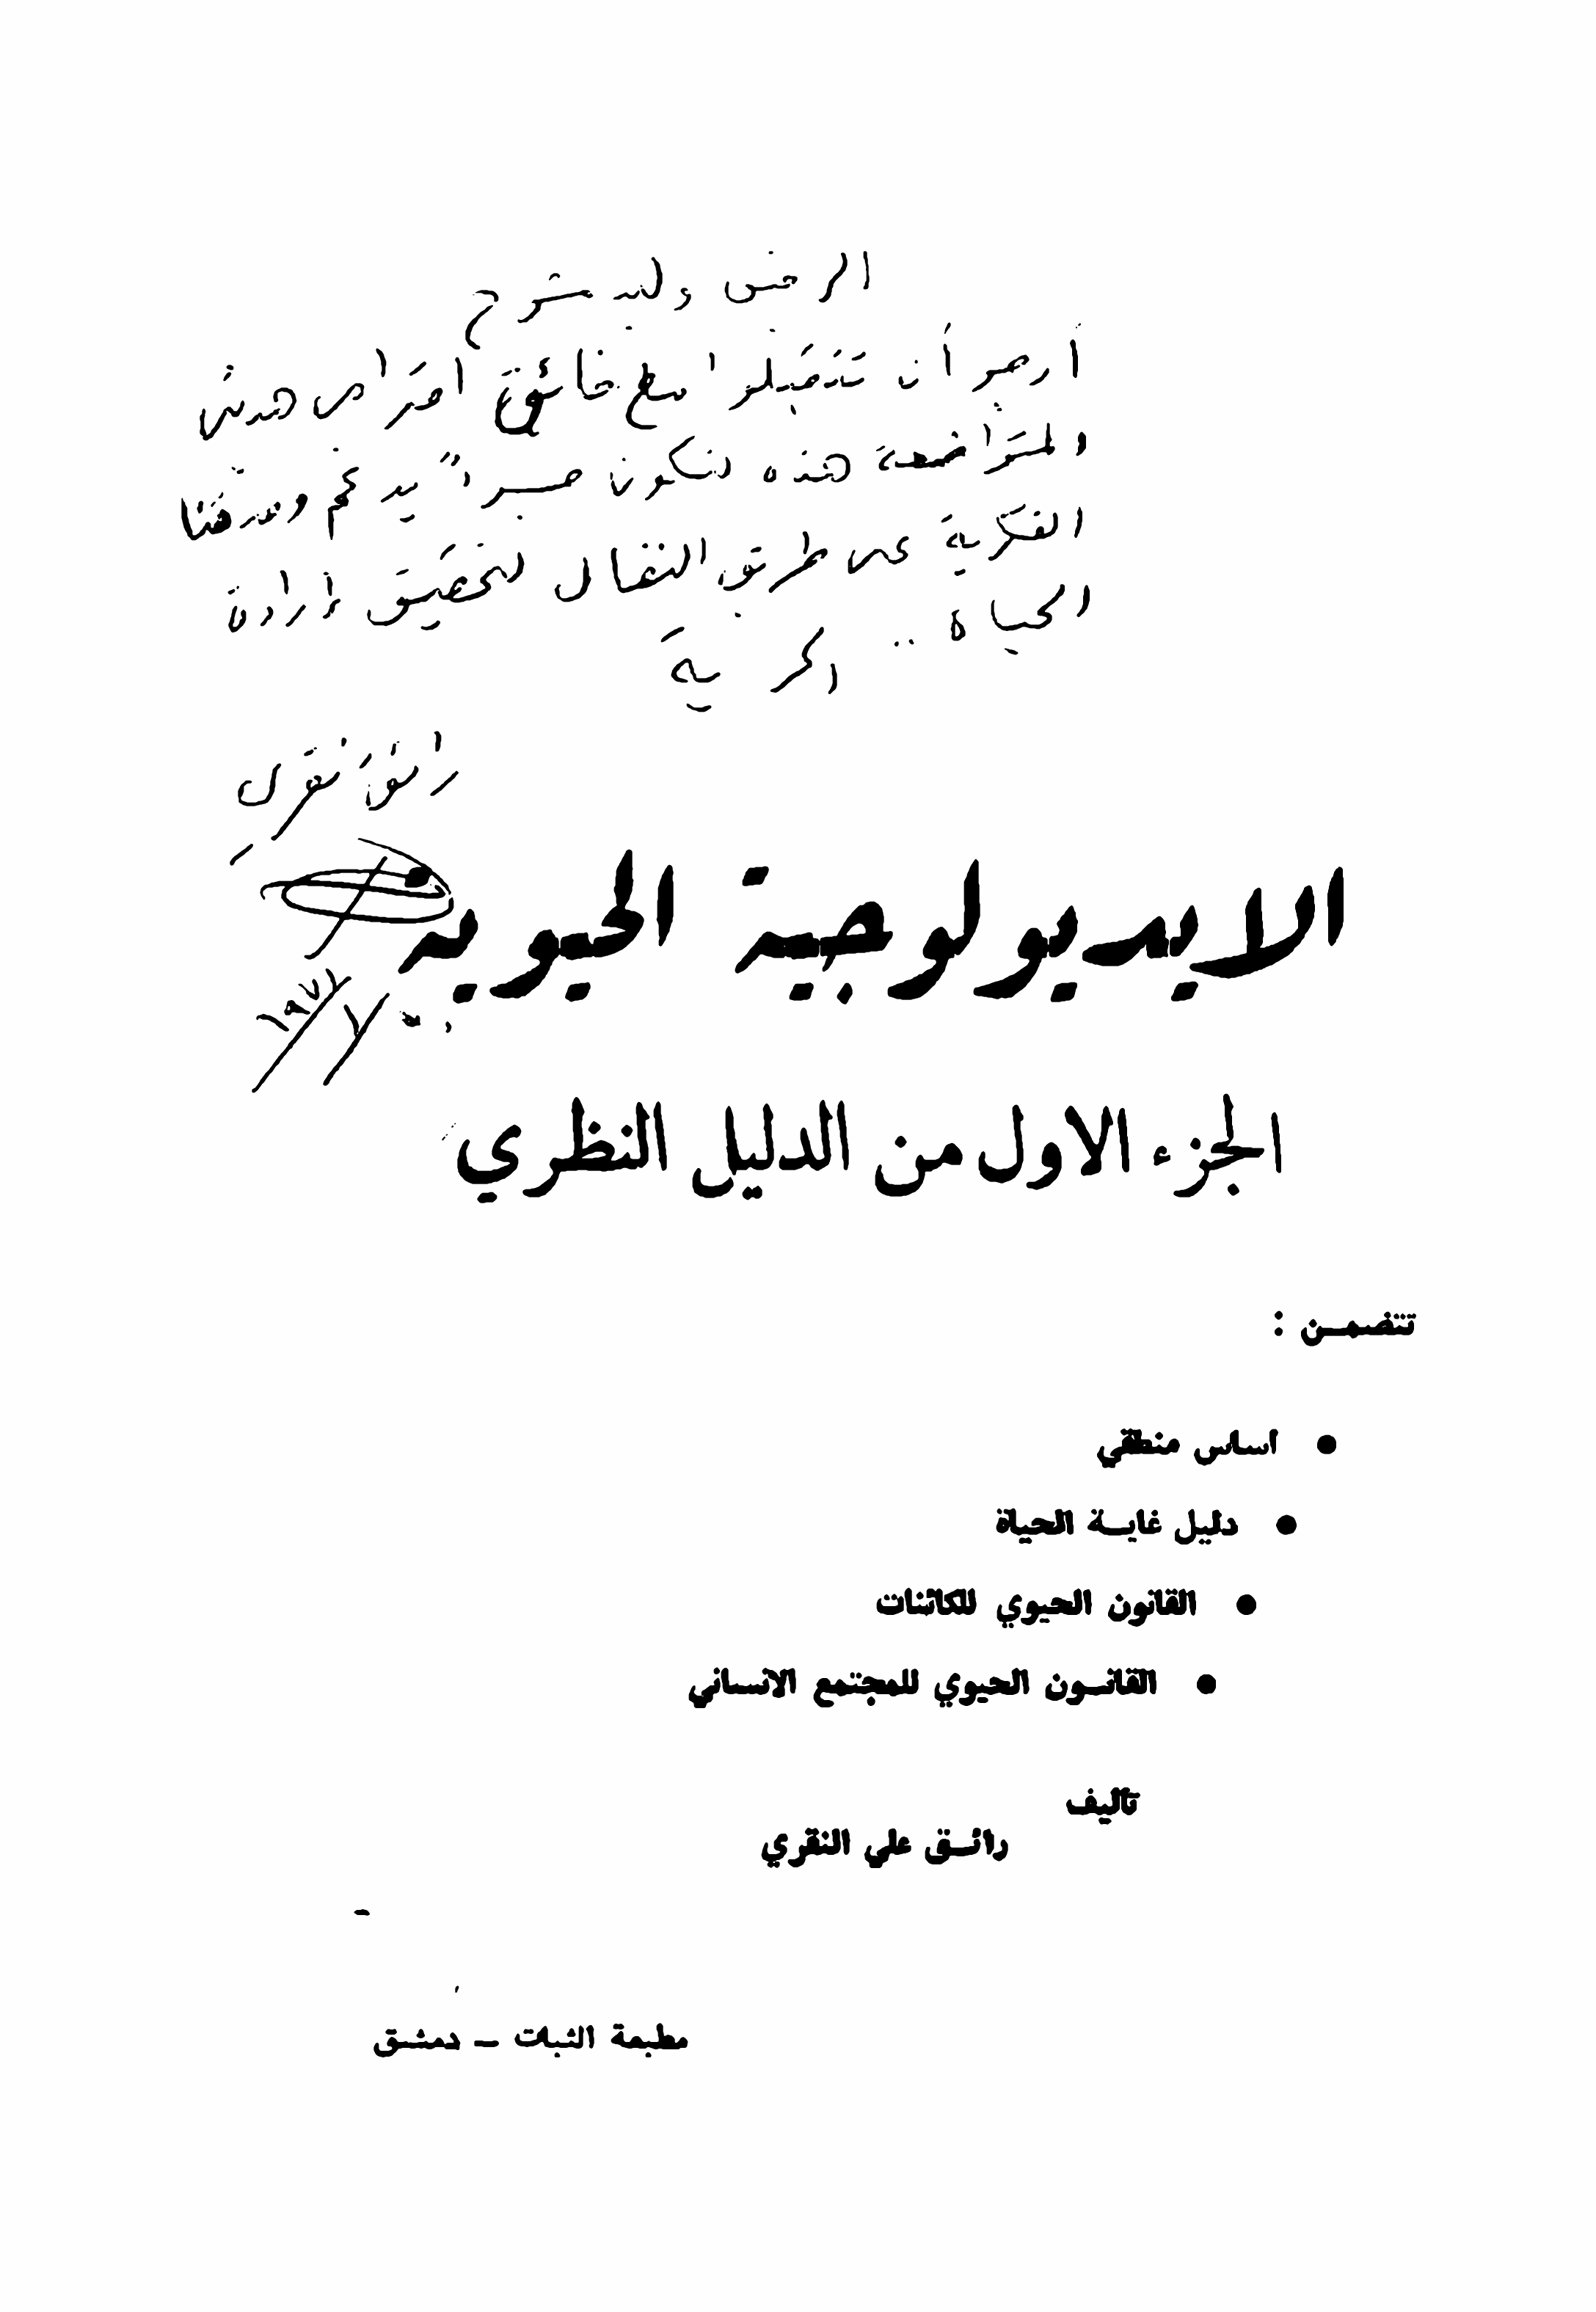 أرجو أن تتقبلوا مع فائق احترامي هديتي
المتواضعة هذه لتكون جسراً يدعم
الفكرية على طريق النضال لتحقيق إرادة
الحياة ..
الحرية
رائق النقري
الايديولوجية الحيوية
الجزء الاول من الدليل النظري
تتضمـن :
• اساس منطقي
• دليل غايـة الحياة
• القانون الحيوي للكائنات
• القانـون الحيوي للمجتمع الانساني
تأليف
رائـق علي النقري
مطبعة الثبات ـ دمشـق